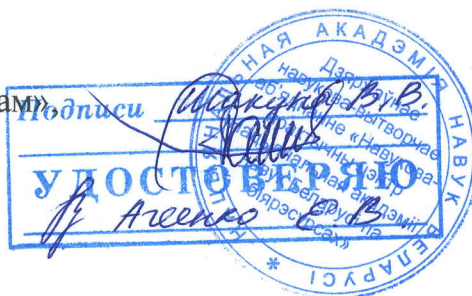 ам»,
Подписи Шакунр В.В.
УДОСТОВЕРЯЮ
Агеенко Е.В.
НАЦЫЯНАЛЬНАЯ АКАДЭМІЯ НАВУК БЕЛАРУСІ *
Дзяржаўнае
навукова-вытворчае
аб'яднанне «Навукова-
практычны цэнтр
Нацыянальнай акадэміі
навук Беларусі па
біярэсурсах»